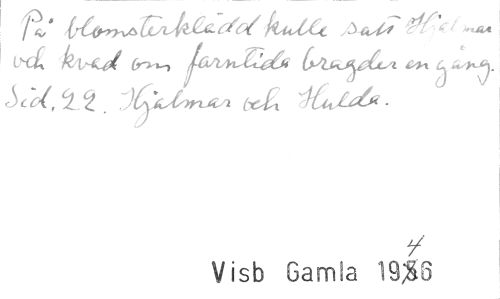 På blomsterklädd kulle sats Hjalmar
och kvad om farntida bragder en gång.
Sid. 22. Hjalmar och Hulda.
4
Visb Gamla 1956